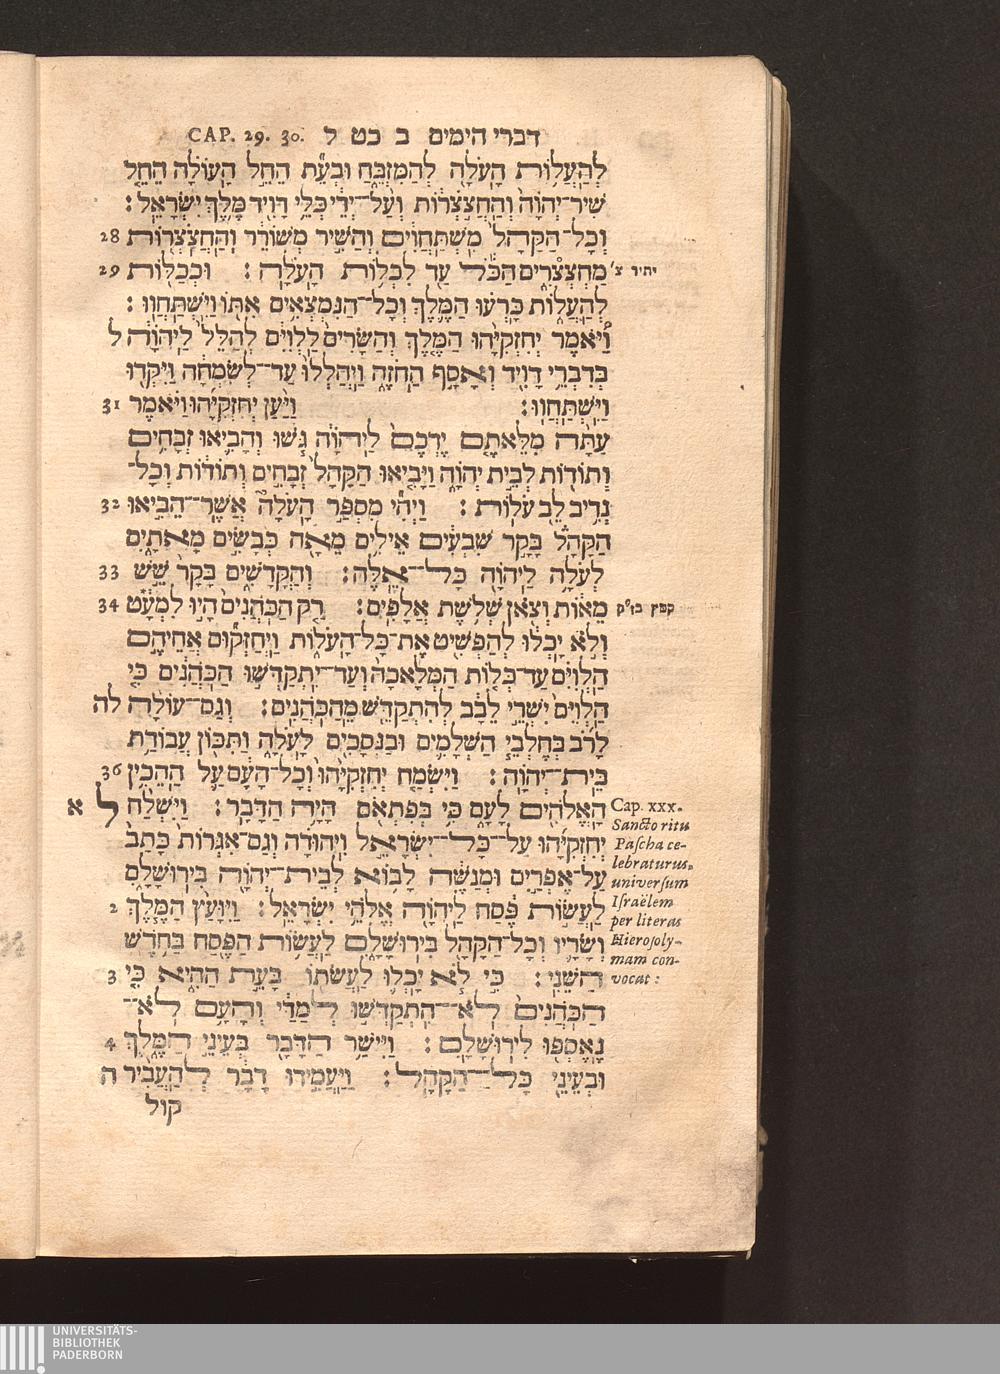 דברי הימים ב כט ל CAP. 29. 30.
לְהַעֲלוֹת הָעֹלָה לְהַמִּזְבֵּחַ וּבְעֵת הֵחֵל הָעוֹלָה הֵחֵל
שִׁיר־יְהוָה וְהַחֲצֹצְרוֹת וְעַל־יְדֵי כְּלֵי דָּוִיד מֶלֶךְ יִשְׂרָאֵל׃
וְכָל־הַקָּהָל מִשְׁתַּחֲוִים וְהַשִּׁיר מְשׁוֹרֵר וְהַחֲצֹצְרוֹת 28
יתיר צ' מַחְצְצרִים הַכֹּל עַד לִכְלוֹת הָעֹלָה׃ וּכְכַלּוֹת 29
לְהַעֲלוֹת כָּרְעוּ הַמֶּלֶךְ וְכָל־הַנִּמְצְאִים אִתּוֹ וַיִּשְׁתַּחֲווּ׃
וַיֹּאמֶר יְחִזְקִיָּהוּ הַמֶּלֶךְ וְהַשָּׂרִים לַלְוִיִּם לְהַלֵּל לַיהוָה ל
בְּדִבְרֵי דָוִיד וְאָסָף הַחֹזֶה וַיְהַלְלוּ עַד־לְשִׂמְחָה וַיִּקְּדוּ
וַיִּשְׁתַּחֲווּ׃ וַיַּעַן יְחִזְקִיָּהוּ וַיֹּאמֶר 31
עַתָּה מִלֵּאתֶם יֶדְכֶם לַיהוָה גֹּשׁוּ וְהָבִיאוּ זְבָחִים
וְתוֹדוֹת לְבֵית יְהוָה וַיָּבִיאוּ הַקָּהָל זְבָחִים וְתוֹדוֹת וְכָל־
נְדִיב לֵב עֹלוֹת׃ וַיְהִי מִסְפַּר הָעֹלָה אֲשֶׁר־הֵבִיאוּ 32
הַקָּהָל בָּקָר שִׁבְעִים אֵילִים מֵאָה כְּבָשִׂים מָאתָיִם
לְעֹלָה לַיהוָה כָּל־אֵלֶּה׃ וְהַקֳּדָשִׁים בָּקָר שֵׁשׁ 33
קמץ בז"ק מֵאוֹת וְצֹאן שְׁלֹשֶׁת אֲלָפִים׃ רַק הַכֹּהֲנִים הָיוּ לִמְעָט 34
וְלֹא יָכְלוּ לְהַפְשִׁיט אֶת־כָּל־הָעֹלוֹת וַיְחַזְּקוּם אֲחֵיהֶם
הַלְוִיִּם עַד־כְּלוֹת הַמְּלָאכָה וְעַד־יִתְקַדְּשׁוּ הַכֹּהֲנִים כִּי
הַלְוִיִּם יִשְׁרֵי לֵבָב לְהִתְקַדֵּשׁ מֵהַכֹּהֲנִים׃ וְגַם־עוֹלָה לה
לָרֹב בְּחֶלְבֵי הַשְּׁלָמִים וּבַנְּסָכִים לָעֹלָה וַתִּכּוֹן עֲבוֹדַת
בֵּית־יְהוָה׃ וַיִּשְׂמַח יְחִזְקִיָּהוּ וְכָל־הָעָם עַל הַהֵכִין 36
הָאֱלֹהִים לָעָם כִּי בְּפִתְאֹם הָיָה הַדָּבָר׃ וַיִּשְׁלַח ל א
יְחִזְקִיָּהוּ עַל־כָּל־יִשְׂרָאֵל וִיהוּדָה וְגַם־אִגְּרוֹת כָּתַב
עַל־אֶפְרַיִם וּמְנַשֶּׁה לָבוֹא לְבֵית־יְהוָה בִּירוּשָׁלִָם
לַעֲשׂוֹת פֶּסַח לַיהוָה אֱלֹהֵי יִשְׂרָאֵל׃ וַיִּוָּעַץ הַמֶּלֶךְ 2
וְשָׂרָיו וְכָל־הַקָּהָל בִּירוּשָׁלִָם לַעֲשׂוֹת הַפֶּסַח בַּחֹדֶשׁ
הַשֵּׁנִי׃ כִּי לֹא יָכְלוּ לַעֲשֹׂתוֹ בָּעֵת הַהִיא כִּי 3
הַכֹּהֲנִים לֹא־הִתְקַדְּשׁוּ לְמַדַּי וְהָעָם לֹא־
נֶאֶסְפוּ לִירוּשָׁלִָם׃ וַיִּישַׁר הַדָּבָר בְּעֵינֵי הַמֶּלֶךְ 4
וּבְעֵינֵי כָּל־הַקָּהָל׃ וַיַּעֲמִידוּ דָבָר לְהַעֲבִיר ה
קול
Cap. xxx.
Sancto ritu
Pascha ce-
lebraturus,
universum
Israëlem
per literas
Hierosoly-
mam con-
vocat:
UNIVERSITÄTS-
BIBLIOTHEK
PADERBORN